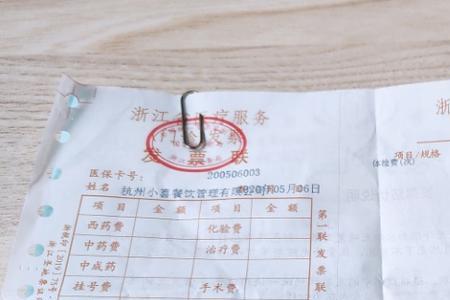 浙江 疗服务
浙
发票联
项目/规格
体检费(次)
医保卡号:
200506003
姓名
杭州小喜餐饮管理有限公司
2020年05月06日
项目 金额 项目 金额
西药费 化验费
中药费 治疗费
中成药
挂号费 手术费
第一联发票联